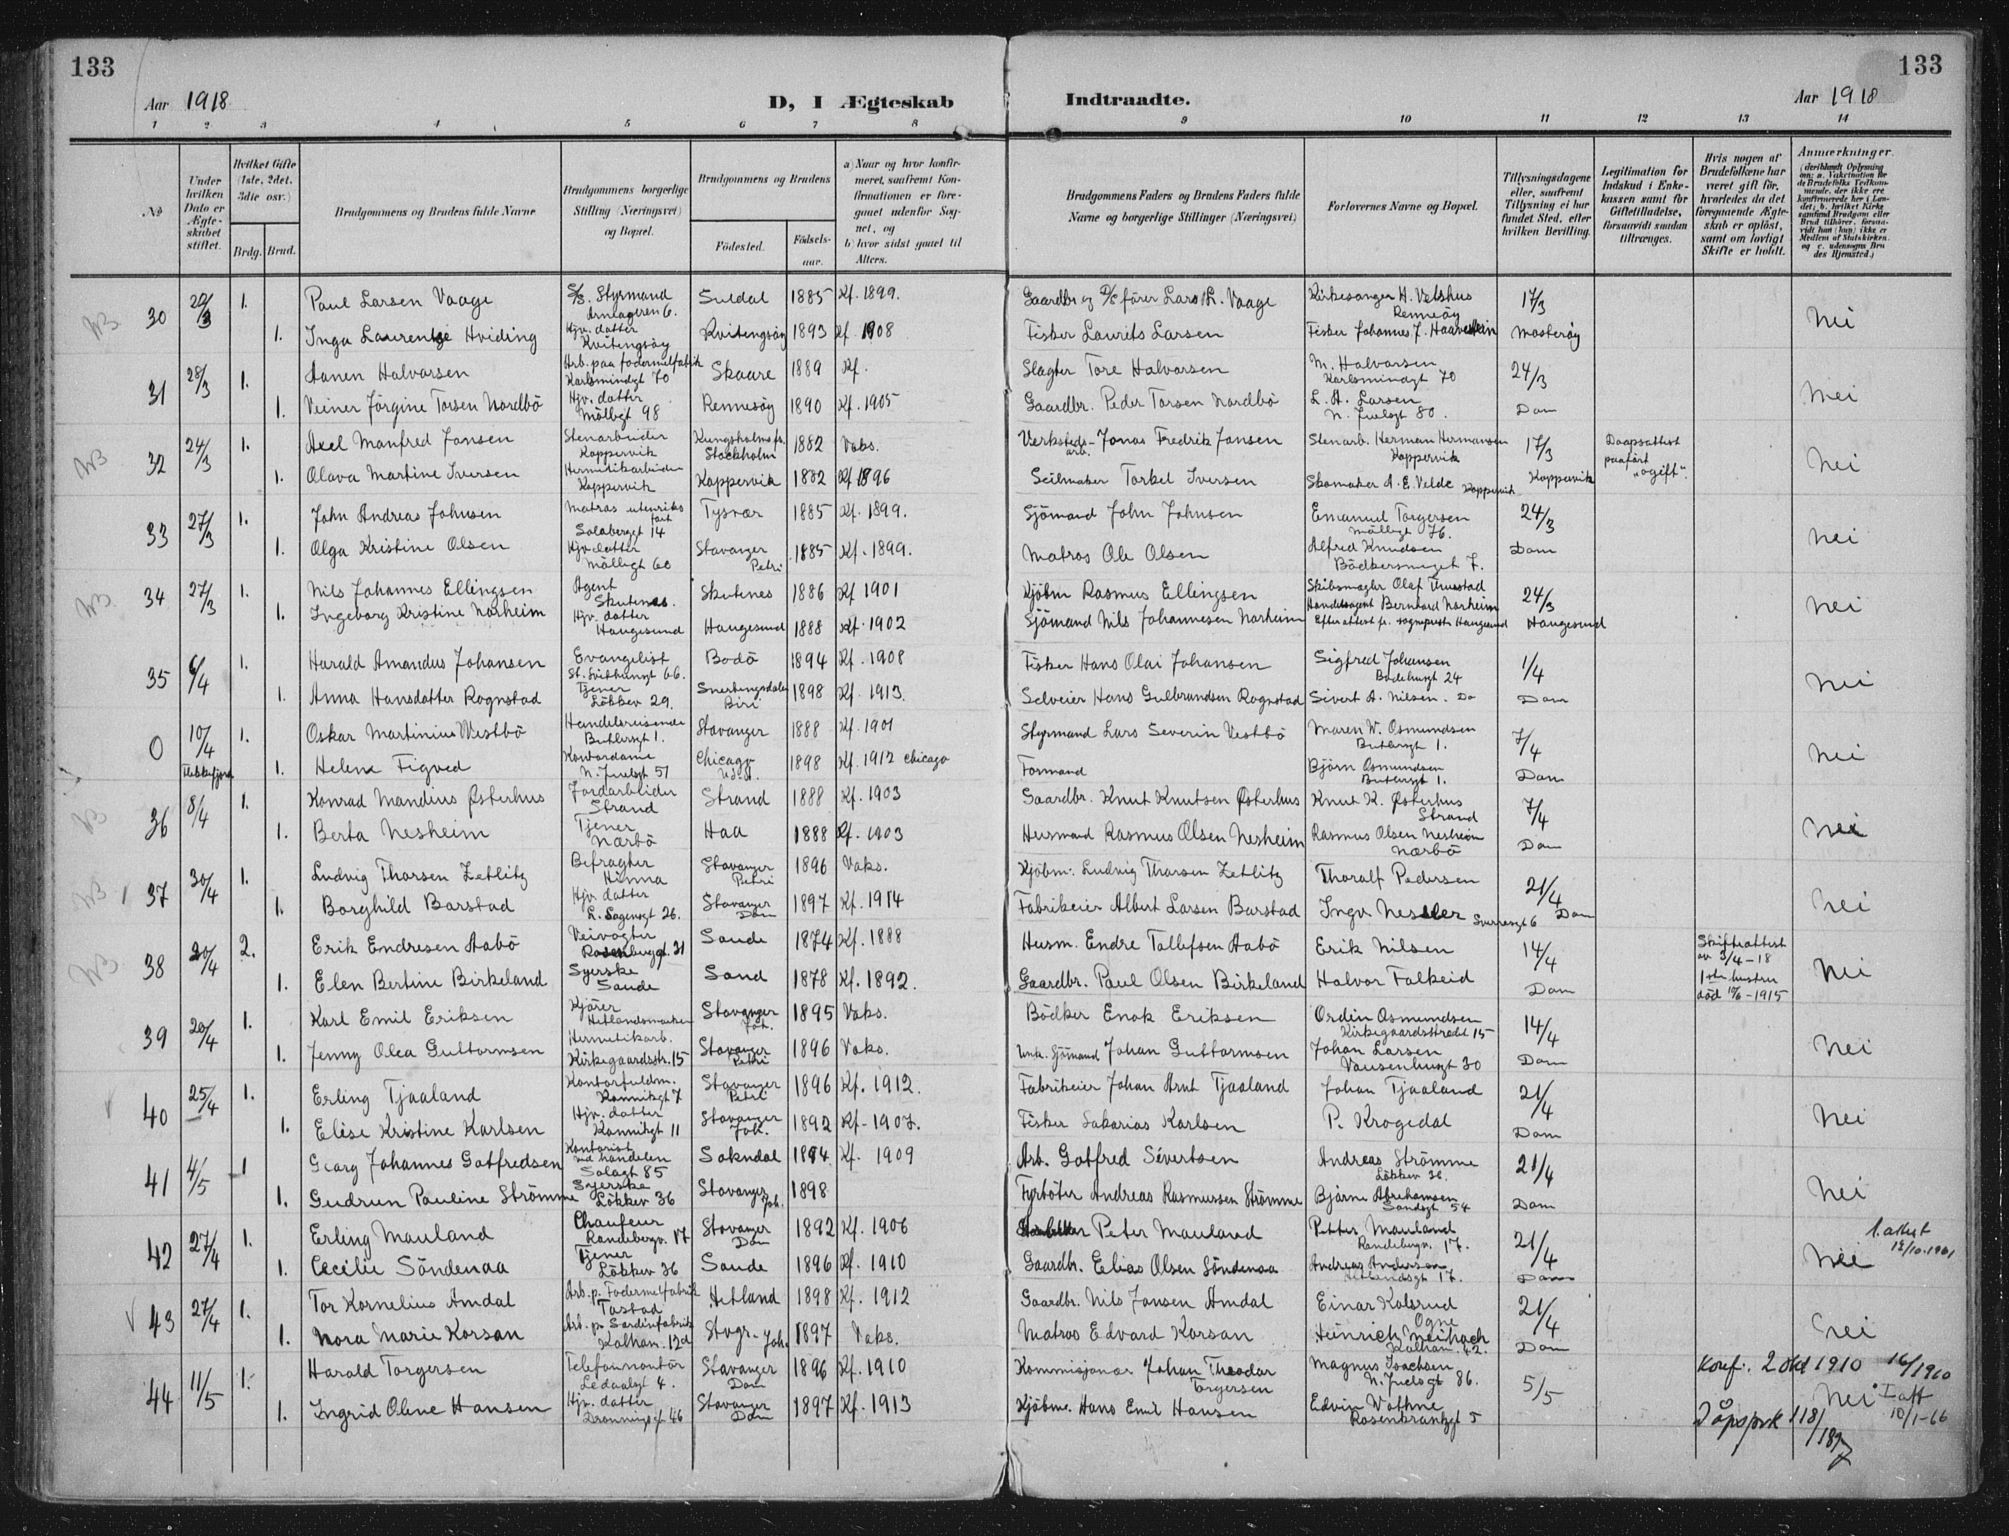 133
133
Aar 1918
D, I Ægteskab Indtraadte.
Aar 1918
1 2 3 4 5 6 7 8 9 10 11 12 13 14
No
Under hvilken Dato er Ægteskabet stiftet.
Hvilket Gifte (1ste, 2det, 3die osv.)
Brdg. Brud.
Brudgommens og Brudens fulde Navne
Brudgommens borgerlige Stilling (Næringsvei) og Bopæl.
Brudgommens og Brudens
Fødested. Fødselsaar.
a) Naar og hvor konfirmeret, saafremt Konfirmationen er foregaaet udenfor Sognet, og
b) hvor sidst gaaet til Alters.
Brudgommens Faders og Brudens Faders fulde Navne og borgerlige Stillinger (Næringsvei)
Forlovernes Navne og Bopæl.
Tillysningsdagene eller, saafremt Tillysning ei har fundet Sted, efter hvilken Bevilling.
Legitimation for Indskud i Enkekassen samt for Giftetilladelse, forsaavidt saadan tiltrænges.
Hvis nogen af Brudefolkene har været gift før, hvorledes da det foregaaende Ægteskab er opløst, samt om lovligt Skifte er holdt.
Anmærkninger.
30 20/3 1. Paul Larsen Vaage S/S. Styrmand Armageren 6. Suldal 1885 Kf. 1899. Gaardbr og D/S fører Lars L. Vaage Kirkesanger H. Vetshus Rennesøy 17/3 Nei
1. Inga Laurentse Hviding Hjv. datter Kvitingsøy Kvitingsøy 1893 Kf. 1908 Fisker Laurits Larsen Fisker Johannes J. Haavestein Mosterøy
31 28/3 1. Aanen Halvorsen Arb. paa fodermelfabrik Karlsmindegt 70 Skaare 1889 Kf. Slagter Tore Halvorsen M. Halvorsen Karlsmindegt 70 24/3 Nei
1. Veiner Jörgine Torsen Nordbö Hjv. datter Möllegt 98 Rennesöy 1890 Kf. 1905 Gaardbr. Peder Torsen Nordbö L. A. Larsen N. Juelsgt 80. Dom
32 24/3 1. Axel Manfred Jansen Stenarbeider Koppervik Kungsholms fs. Stockholm 1882 Vaks. Verkstedsarb. Jonas Fredrik Jansen Stenarb. Herman Hermansen Koppervik 17/3 Daapsattest paaført "ogift". Nei
1. Olava Martine Iversen Hermetikarbeider Koppervik Koppervik 1882 Kf 1896 Seilmaker Torkel Iversen Skomaker A. E. Velde Koppervik Koppervik
33 27/3 1. John Andreas Johnsen Matros utenriks fart Solaberget 14 Tysvær 1885 Kf. 1899. Sjömand John Johnsen Emanuel Torgersen Möllegt 76. 24/3 Nei
1. Olga Kristine Olsen Hjv. datter Möllegt 60 Stavanger Petri 1885 Kf. 1899. Matros Ole Olsen Alfred Knudsen Bödkersmuget 7. Dom
34 27/3 1. Nils Johannes Ellingsen Agent Skutenes. Skutenes 1886 Kf 1901 Kjöbm Rasmus Ellingsen Skibsmægler Olaf Thuestad 24/3 Nei
1. Ingeborg Kristine Norheim Hjv. datter Haugesund Haugesund 1888 Kf. 1902 Sjömand Nils Johannesen Norheim Handelsagent Bernhard Norheim Efter attest fr. sogneprest Haugesund Haugesund
35 6/4 1. Harald Amandus Johansen Evangelist St. Svithunsgt 66. Bodö 1894 Kf. 1908 Fisker Hans Olai Johansen Sigfred Johansen Badehusgt 24 1/4 Nei
1. Anna Hansdatter Rognstad Tjener Lökkev 29. Snertingsdalen Biri 1898 Kf. 1913. Selveier Hans Gulbrandsen Rognstad Sivert A. Nilsen. Do Dom
0 10/4 Flekkefjord 1. Oskar Martinius Westbö Handelsreisende Butlersgt 1. Stavanger 1888 Kf. 1901 Styrmand Lars Severin Vestbö Maren W. Osmundsen Butlersgt 1. 7/4 Nei
1. Helene Figved Kontordame N. Juelsgt 51 Chicago U.S.A. 1898 Kf. 1912 Chicago Formand Björn Osmundsen Butlersgt 1. Dom
36 8/4 1. Konrad Mandius Østerhus Jordarbeider Strand Strand 1888 Kf. 1903 Gaardbr. Knut Knutsen Østerhus Knut K. Østerhus Strand 7/4 Nei
1. Berta Nesheim Tjener Nærbö Haa 1888 Kf. 1903 Husmand Rasmus Olsen Nesheim Rasmus Olsen Nesheim Nærbö Dom
37 30/4 1. Ludvig Thorsen Zetlitz Befragter Hinna Stavanger Petri 1896 Vaks. Kjöbm. Ludvig Thorsen Zetlitz Thoralf Pedersen 21/4 Nei
1. Borghild Barstad Hjv. datter L. Sagensgt 26. Stavanger Dom 1897 Kf. 1914 Fabrikeier Albert Larsen Barstad Ingv. Nessler Sverresgt 6 Dom
38 20/4 2. Erik Endresen Aabö Veivogter Rosenberggt. 31 Sande 1874 Kf. 1888 Husm. Endre Tollefsen Aabö Erik Nilsen 14/4 Skifteattest av 3/4-18 Nei
1. Elen Bertine Birkeland Syerske Saude Sand 1878 Kf. 1892. Gaardbr. Paul Olsen Birkeland Halvor Falkeid Dom 1ste hustru död 10/6-1915
39 20/4 1. Karl Emil Eriksen Kjører Hetlandsmarken Stavanger Joh. 1895 Vaks. Bödker Enok Eriksen Ordin Osmundsen Kirkegaardsstrædet 15 14/4 Nei
1. Jenny Olea Guttormsen Hermetikarb. Kirkegaardsstr. 15 Stavanger Petri 1896 Vaks. Sjömand Johan Guttormsen Johan Larsen Vaisenhusgt 30 Dom
40 25/4 1. Erling Tjaaland Kontorfuldm. Kannikgt 7 Stavanger Petri 1896 Kf. 1912. Fabrikeier Johan Arnt Tjaaland Johan Tjaaland 21/4 Nei
1. Elise Kristine Karlsen Hjv. datter Kannikgt 11 Stavanger Joh. 1892 Kf. 1907. Fisker Sakarias Karlsen P. Krogedal Dom
41 4/5 1 Georg Johannes Gotfredsen Kontorist ved handelen Solagt 85 Sokndal 1894 Kf. 1909 Arb. Gotfred Sivertsen Andreas Strömme Lökkev 36. 21/4 Nei
1. Gudrun Pauline Strömme Syerske Lökkev 36 Stavanger Joh. 1898 Fyrböter Andreas Rasmussen Strömme Bjarne Abrahamsen Sandsgt 54 Dom
42 27/4 1. Erling Mauland Chaufeur Randebergv. 17 Stavanger Dom 1892 Kf. 1906 Peter Mauland Petter Mauland Randebergv. 17. 21/4 Nei 1. attest 12/10-1961
1. Cecilie Söndenaa Tjener Lökkev 36 Saude 1896 Kf. 1910 Gaardbr. Elias Olsen Söndenaa Andreas Anderson Hetlandsgt 17. Dom
43 27/4 1. Tor Kornelius Amdal Arb. p. Fodermelfabrik Tastad Hetland 1898 Kf. 1912 Gaardbr. Nils Jansen Amdal Einar Kolsrud Ogne 21/4 Nei
1. Nora Marie Korsan Arb. p. Sardinfabrik Kalham. 12a Stvgr. Joh. 1897 Vaks. Matros Edvard Korsan Heinrich Meibach Kalham. 42. Dom
44 11/5 1. Harald Torgersen Telefonmontör Ledaalsgt 4. Stavanger Dom 1896 Kf. 1910 Kommisjonær Johan Theodor Torgersen Magnus Isachsen N. Juelsgt 86. 5/5 Konf: 2 okt 1910 16/1960 Nei I att 10/1-66
1. Ingrid Oline Hansen Hjv. datter Dronningsgt 46 Stavanger Dom 1897 Kf. 1913 Kjöbm. Hans Emil Hansen Edvin Wathne Rosenkrantzgt 5 Dåpsprk 118/1897